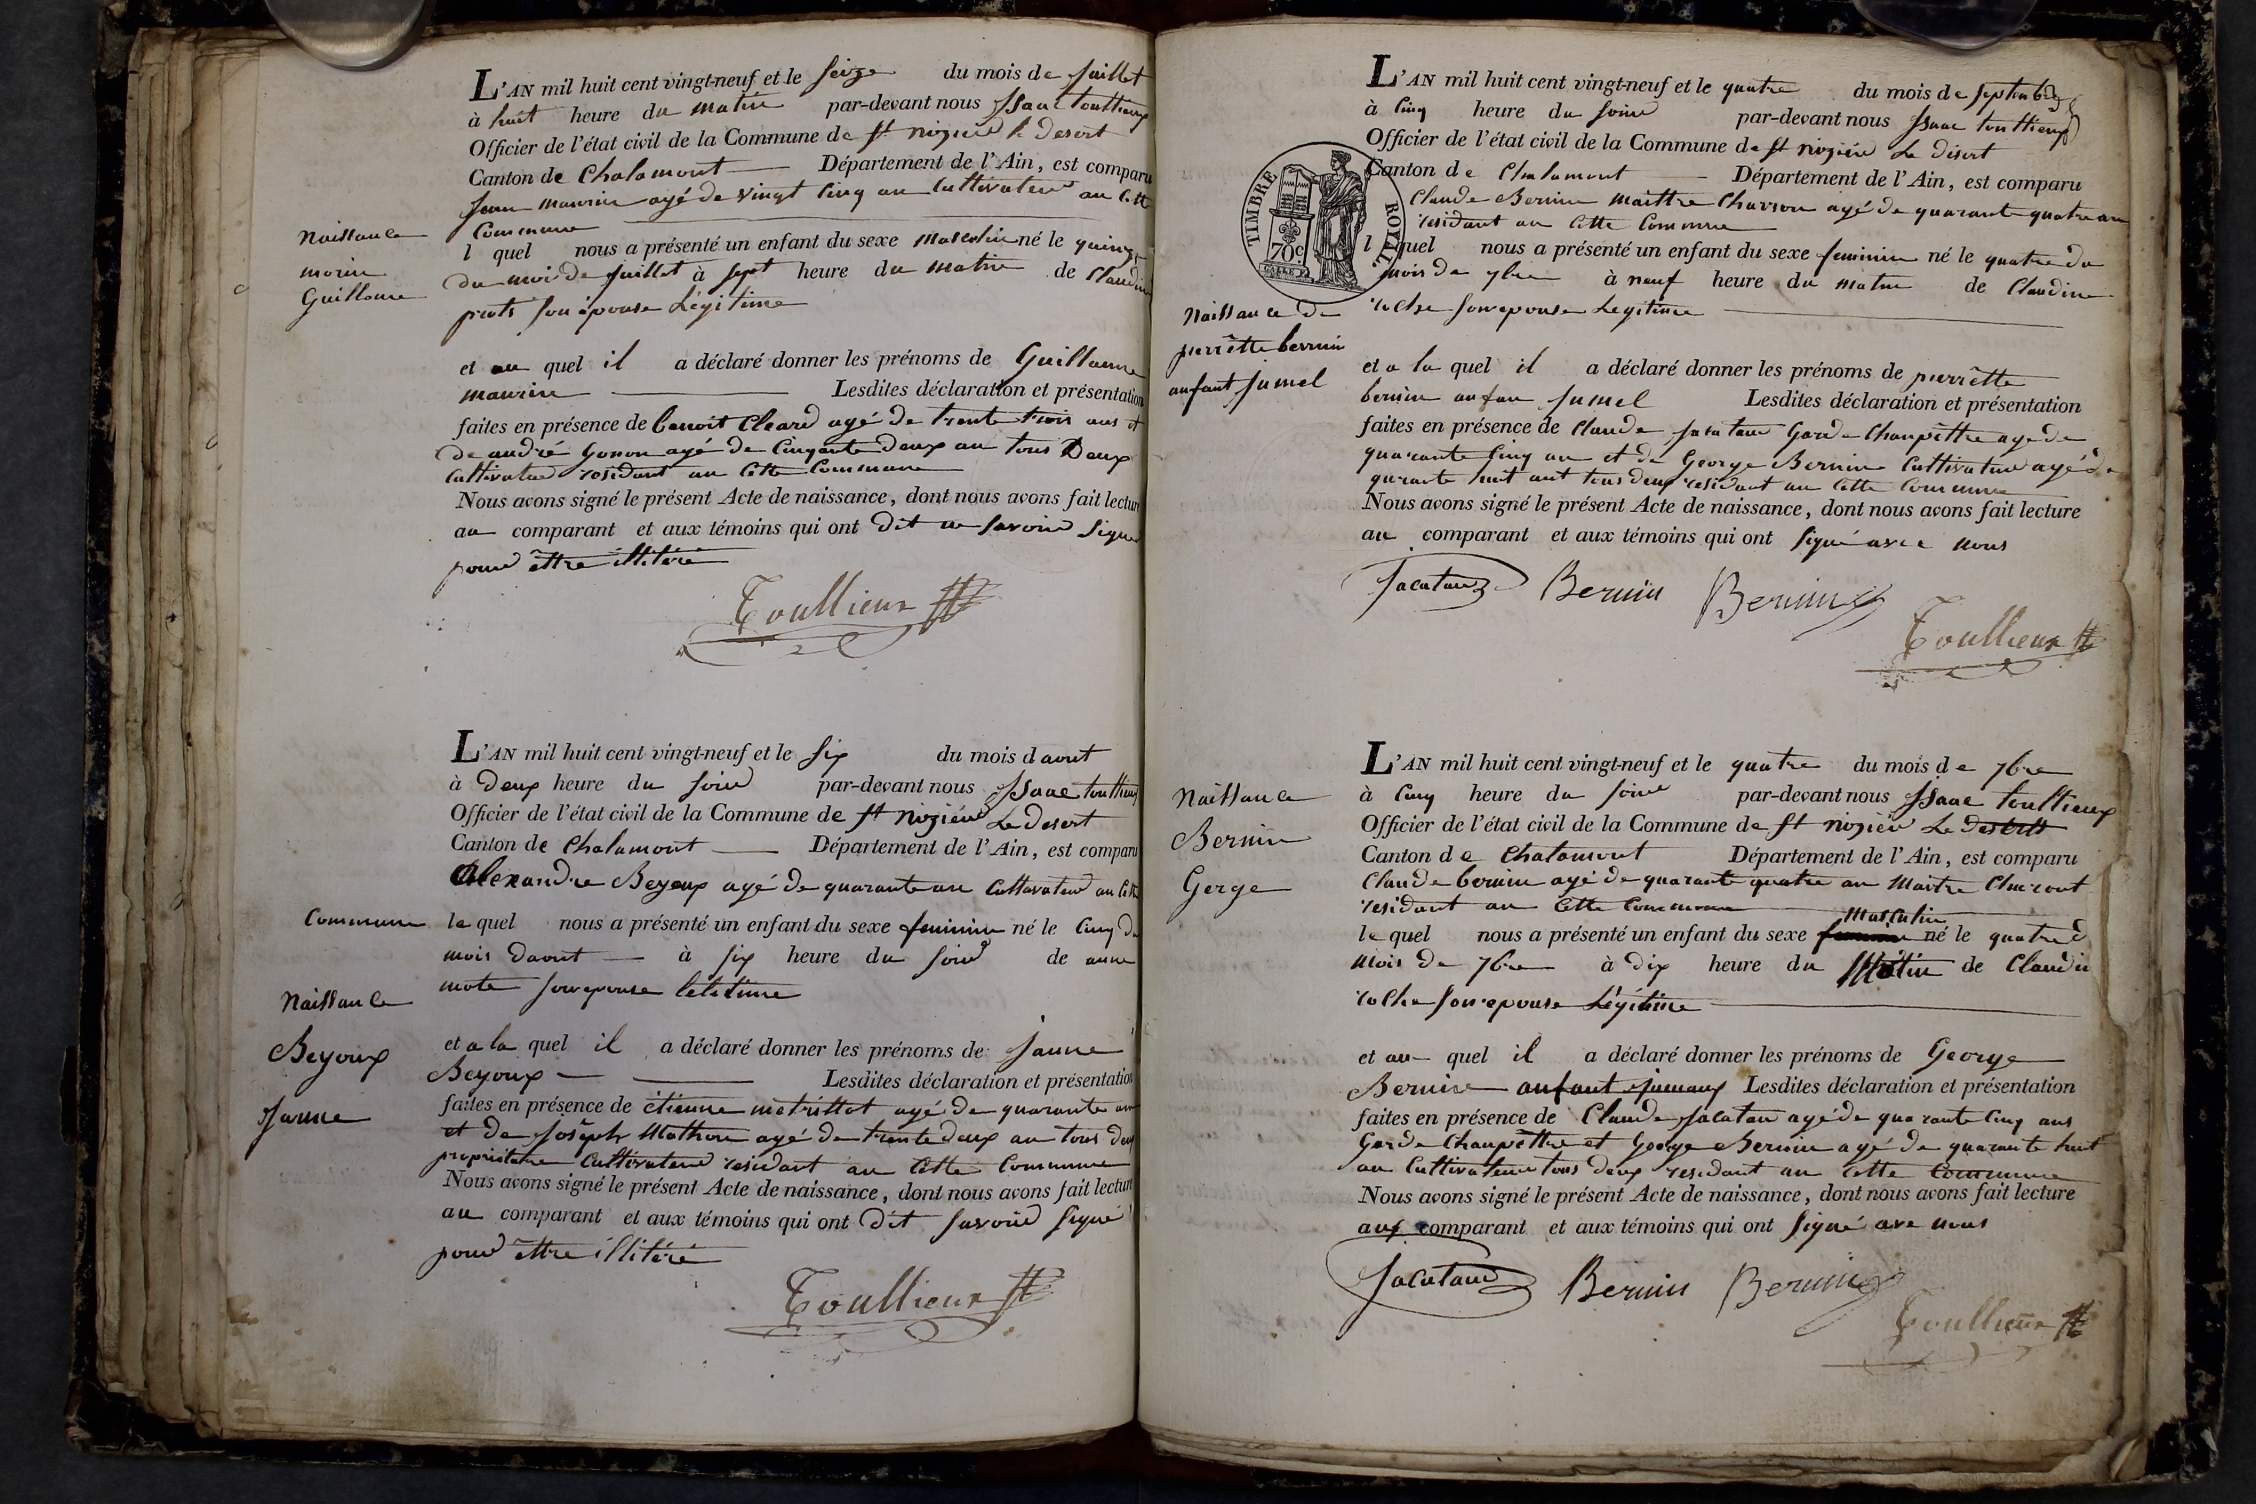 L'AN mil huit cent vingt-neuf et le seize du mois de Juillet
à huit heure du matin par-devant nous Isaac toullieux
Officier de l'état civil de la Commune de st nizier le desert
Canton de Chalamont Département de l'Ain, est comparu
Jean maurin agé de vingt cinq an Cultivateur an Cette
Commune
Naissance
morin
Guillaume
l quel nous a présenté un enfant du sexe masculin né le quinze
du mois de Juillet à sept heure du matin de Claudine
son épouse Légitime
et au quel il a déclaré donner les prénoms de Guillaume
maurin Lesdites déclaration et présentation
faites en présence de benoit Cleard agé de trente trois ans et
de andré Gonon agé de Cinquante deux an tous Deux
Cultivateur residant an Cette Commune
Nous avons signé le présent Acte de naissance, dont nous avons fait lecture
au comparant et aux témoins qui ont dit ne savoir signé
pour êttre illitéré
Toullieux
L'AN mil huit cent vingt-neuf et le six du mois d aout
à Deux heure du soir par-devant nous Isaac toullieux
Officier de l'état civil de la Commune de st nizier Le desert
Canton de Chalamont Département de l'Ain, est comparu
Alexandre Beyoux agé de quarante an Cultavateur an Cette
Commune le quel nous a présenté un enfant du sexe feminin né le Cinq du
mois daout à six heure du soir de anne
mote son epouse
Naissance
Beyoux
Janne
et a la quel il a déclaré donner les prénoms de Janne
Beyoux Lesdites déclaration et présentation
faites en présence de étienne metrillot agé de quarante an
et de Joseph Mathon agé de trente deux an tous deux
propriétaire Cultivateur residant an Cette Commune
Nous avons signé le présent Acte de naissance, dont nous avons fait lecture
au comparant et aux témoins qui ont dit savoir signé
pour êttre illitéré
Toullieux
L'AN mil huit cent vingt-neuf et le quatre du mois de septembre
à Cinq heure du soir par-devant nous Isaac toullieux
Officier de l'état civil de la Commune de st nizier Le désert
Canton de Chalamont Département de l'Ain, est comparu
Claude Bernin maittre Charron agé de quarante quatre an
residant an Cette Commune
TIMBRE ROYAL
70c
l quel nous a présenté un enfant du sexe feminin né le quatre du
mois de 7bre à neuf heure du matin de Claudine
roche son epouse Legitime
Naissance de
pierrêtte bernin
anfant Jumel
et a la quel il a déclaré donner les prénoms de pierrêtte
bernin anfan Jumel Lesdites déclaration et présentation
faites en présence de Claude Jacatau Garde Champêttre agé de
quarante Cinq an et de George Bernin Cultivateur agé de
quarante huit ant tous deux residant an Cette Commune
Nous avons signé le présent Acte de naissance, dont nous avons fait lecture
au comparant et aux témoins qui ont signé avec nous
Jacataud Bernin Bernin
Toullieux
L'AN mil huit cent vingt-neuf et le quatre du mois de 7bre
à Cinq heure du soir par-devant nous Isaac toullieux
Officier de l'état civil de la Commune de st nizier Le desert
Canton de Chalamont Département de l'Ain, est comparu
Claude bernin agé de quarante quatre an Maitre Charront
residant an Cette Commune
Naissance
Bernin
Gerge
masculin
le quel nous a présenté un enfant du sexe né le quatre d
mois de 7bre à dix heure du Matin de Claudin
roche son epouse Légitime
et au quel il a déclaré donner les prénoms de George
Bernin anfant Jumaux Lesdites déclaration et présentation
faites en présence de Claude Jacatau agé de quarante Cinq ans
Garde Champêttre et George Bernin agé de quarante huit
an Cultivateur tous deux residant an Cette Commune
Nous avons signé le présent Acte de naissance, dont nous avons fait lecture
aux comparant et aux témoins qui ont signé ave nous
Jacataud Bernin Bernin
Toullieux